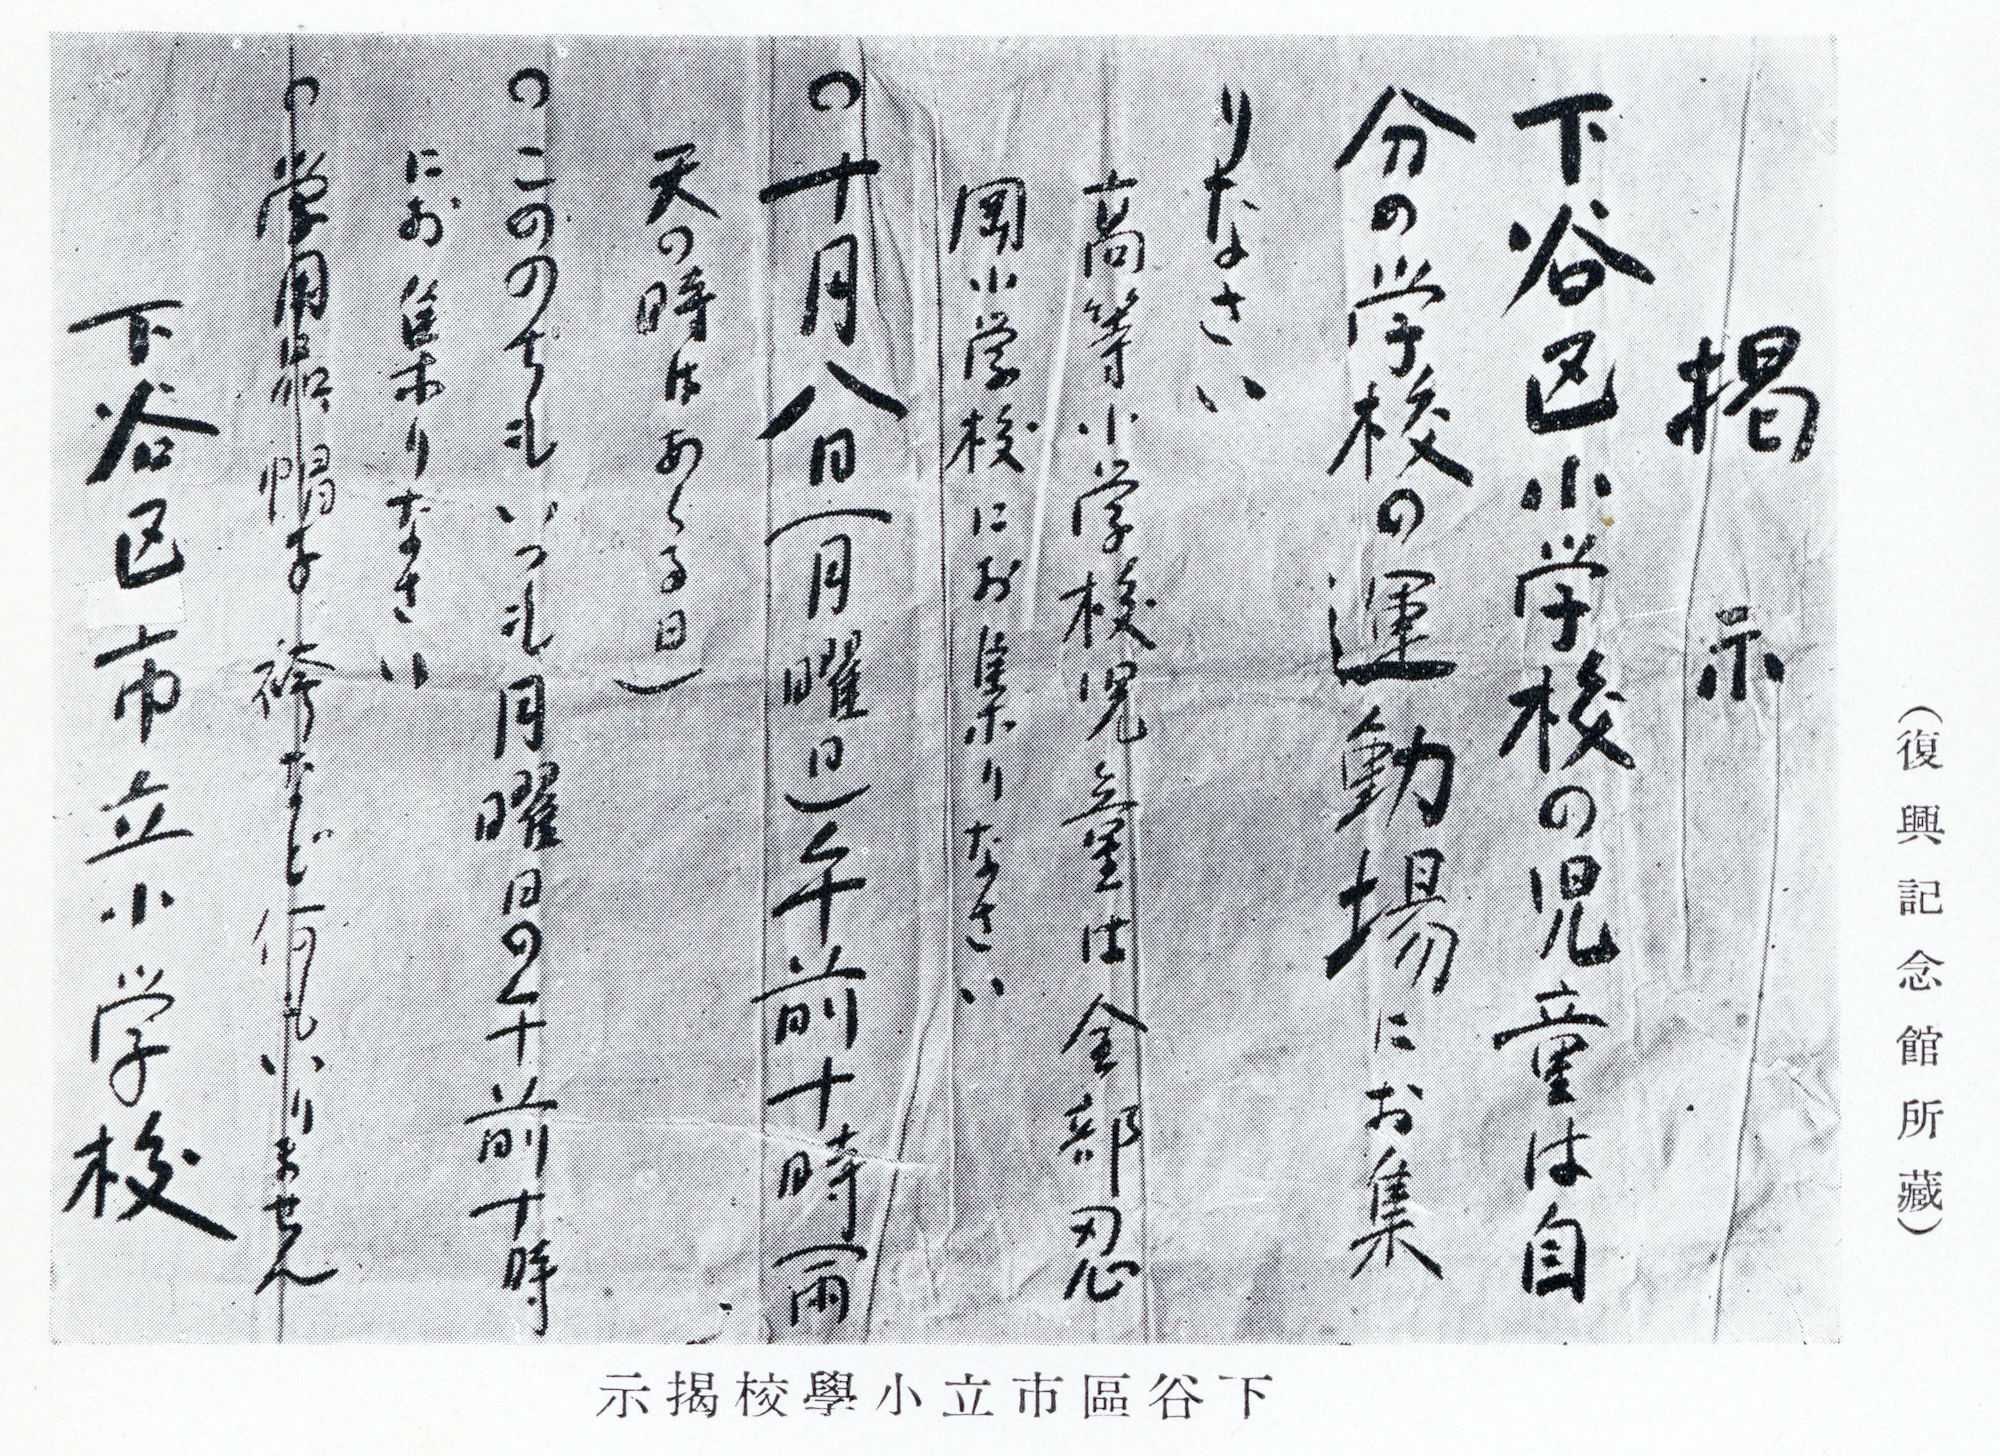 掲示
下谷区小学校の児童は自
分の学校の運動場にお集
りなさい
高等小学校児童は全部忍
岡小学校にお集りなさい
〇十月八日(月曜日)午前十時(雨
天の時はあくる日)
〇こののちもいつも月曜日の午前十時
にお集りなさい
〇学用品帽子袴など何もいりません
下谷区市立小学校
(復興記念館所藏)
示揭校學小立市區谷下